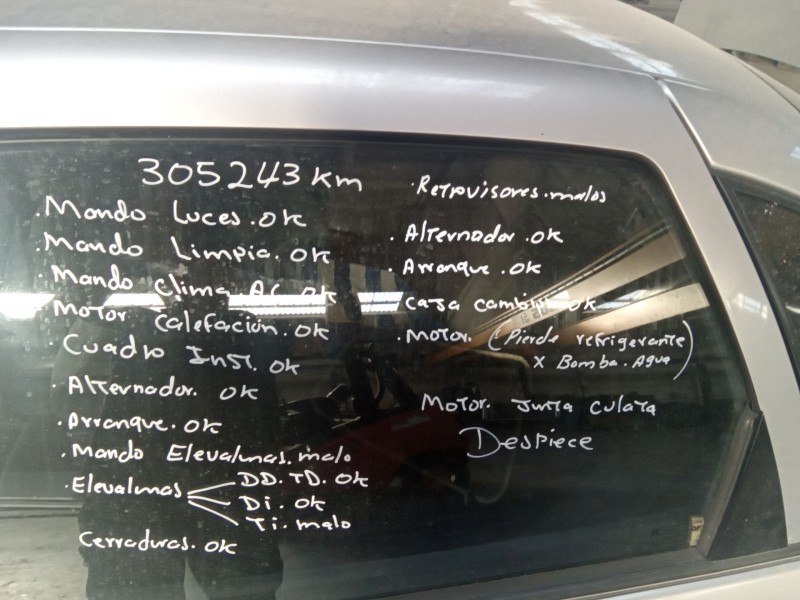 305243 km
.Mando Luces.ok
.Mando Limpia.ok
.Mando clima.AC ok
Motor Calefación.ok
.Cuadro Inst.ok
.Alternador. ok
.Arranque.ok
.Mando Elevalunas.malo
.Elevalunas DD.TD.ok
Di.ok
Ti.malo
Cerraduras.ok
.Retrovisores.malos
.Alternador.ok
.Arranque.ok
Caja cambios ok
.Motor. (Pierde refrigerante
x Bomba.Agua)
Motor. Junta culata
Despiece